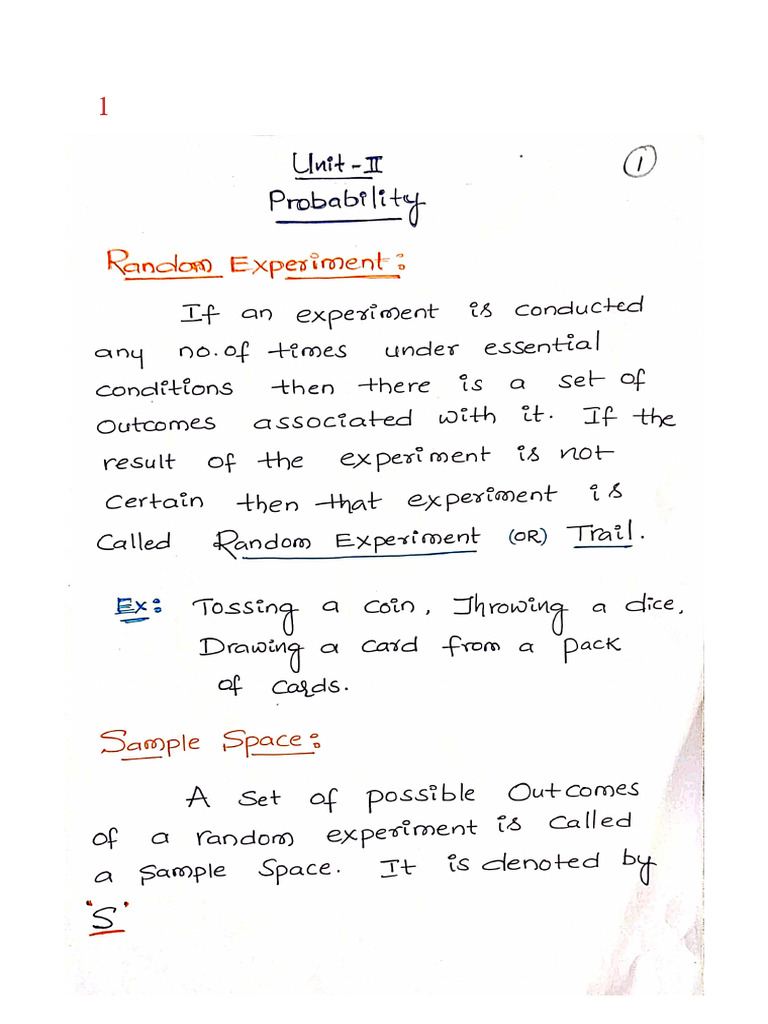 1
Unit-II
1
Probability
Random Experiment:
If an experiment is conducted
any no. of times under essential
conditions then there is a set of
Outcomes associated with it. If the
result of the experiment is not
certain then that experiment is
Called Random Experiment (OR) Trail.
Ex: Tossing a coin, Throwing a dice,
Drawing a card from a pack
of cards.
Sample Space:
A set of possible Outcomes
of a random experiment is called
a Sample Space. It is denoted by
"S"